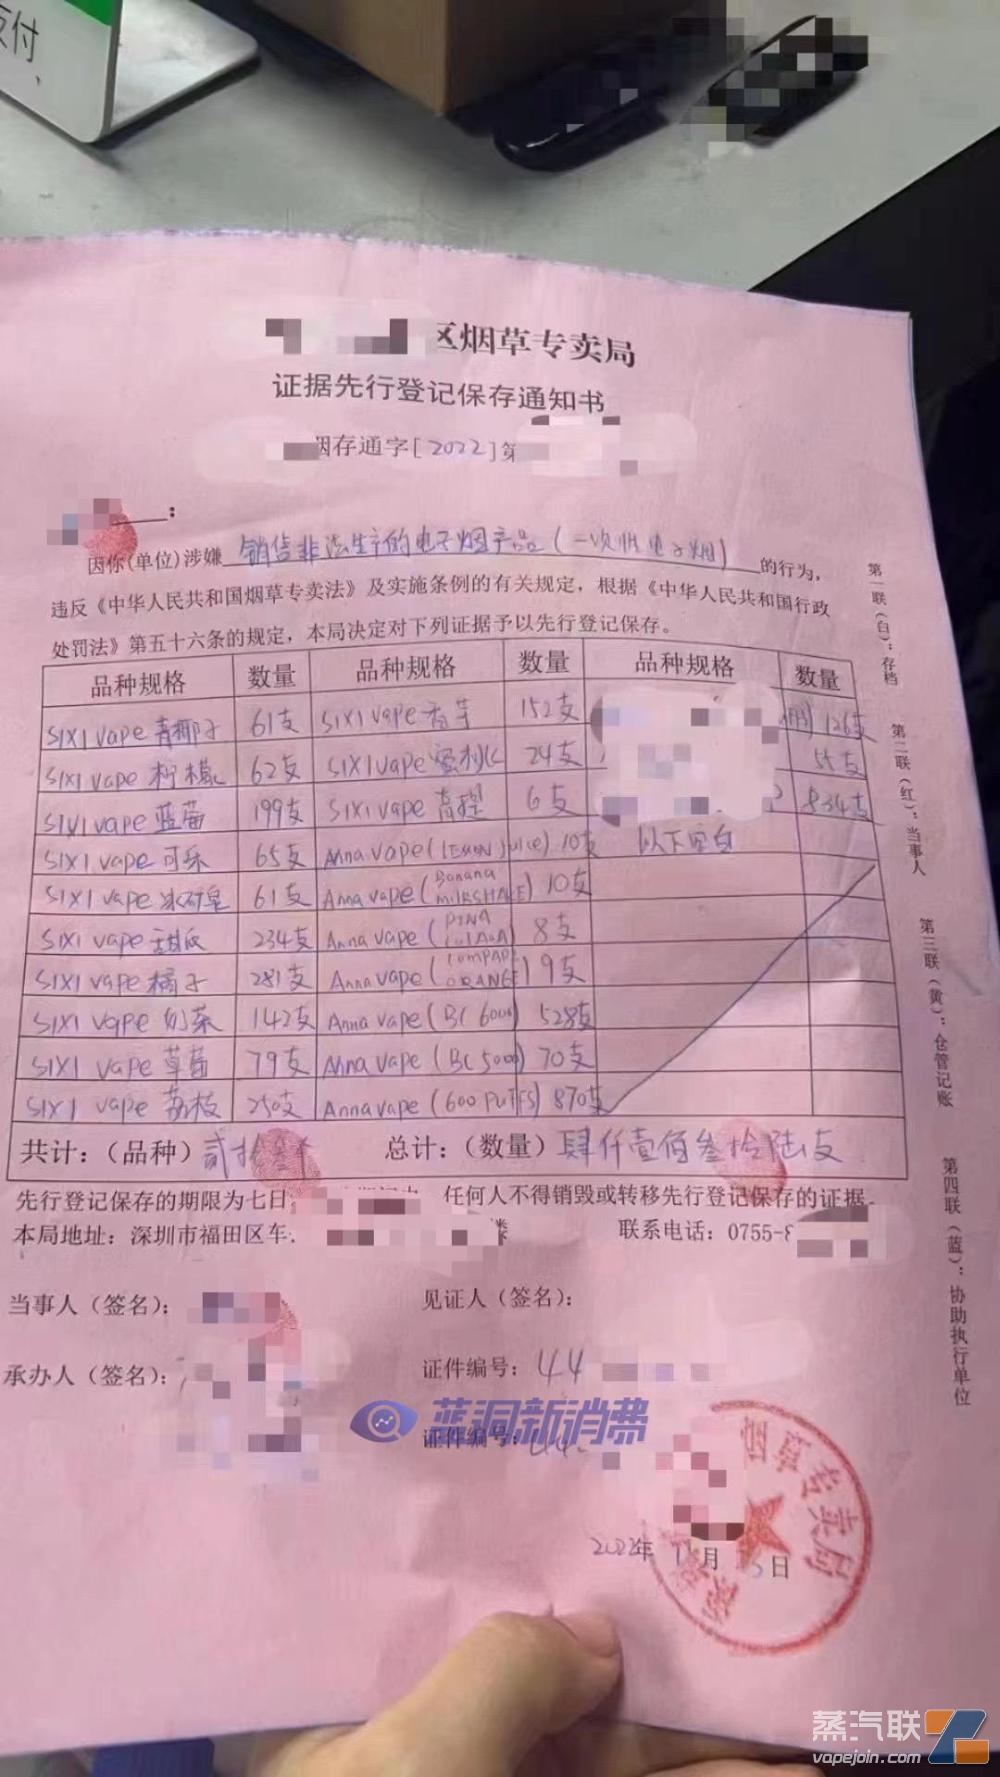 支付
区烟草专卖局
证据先行登记保存通知书
烟存通字[2022]第
：
因你(单位)涉嫌 销售非法生产的电子烟产品(一次性电子烟) 的行为，
违反《中华人民共和国烟草专卖法》及实施条例的有关规定，根据《中华人民共和国行政
处罚法》第五十六条的规定，本局决定对下列证据予以先行登记保存。
品种规格 数量 品种规格 数量 品种规格 数量
SIXI vape 青椰子 61支 SIXI vape 香芋 152支 126支
SIXI vape 柠檬 62支 SIXI vape 蜜桃 24支 55支
SIXI vape 蓝莓 199支 SIXI vape 香橙 6支 834支
SIXI vape 可乐 65支 Anna vape (LEMON JUICE) 10支 以下空白
SIXI vape 冰矿泉 61支 Anna vape (Banana MILKSHAKE) 10支
SIXI vape 甜瓜 234支 Anna vape (PINA COLADA) 8支
SIXI vape 橘子 281支 Anna vape ( ORANGE) 9支
SIXI vape 奶茶 142支 Anna vape (BC 6000) 528支
SIXI vape 草莓 79支 Anna vape (BC 5000) 70支
SIXI vape 荔枝 250支 Anna vape (600 PUFFS) 870支
共计：（品种）贰拾叁个 总计：（数量）肆仟壹佰叁拾陆支
先行登记保存的期限为七日 任何人不得销毁或转移先行登记保存的证据。
本局地址：深圳市福田区车 楼 联系电话：0755-8
当事人（签名）： 见证人（签名）：
承办人（签名）： 证件编号：44
证件编号：44
蓝洞新消费
2022年 11月 日
烟草专卖局
第一联（白）：存档
第二联（红）：当事人
第三联（黄）：仓管记账
第四联（蓝）：协助执行单位
蒸汽联
vapejoin.com